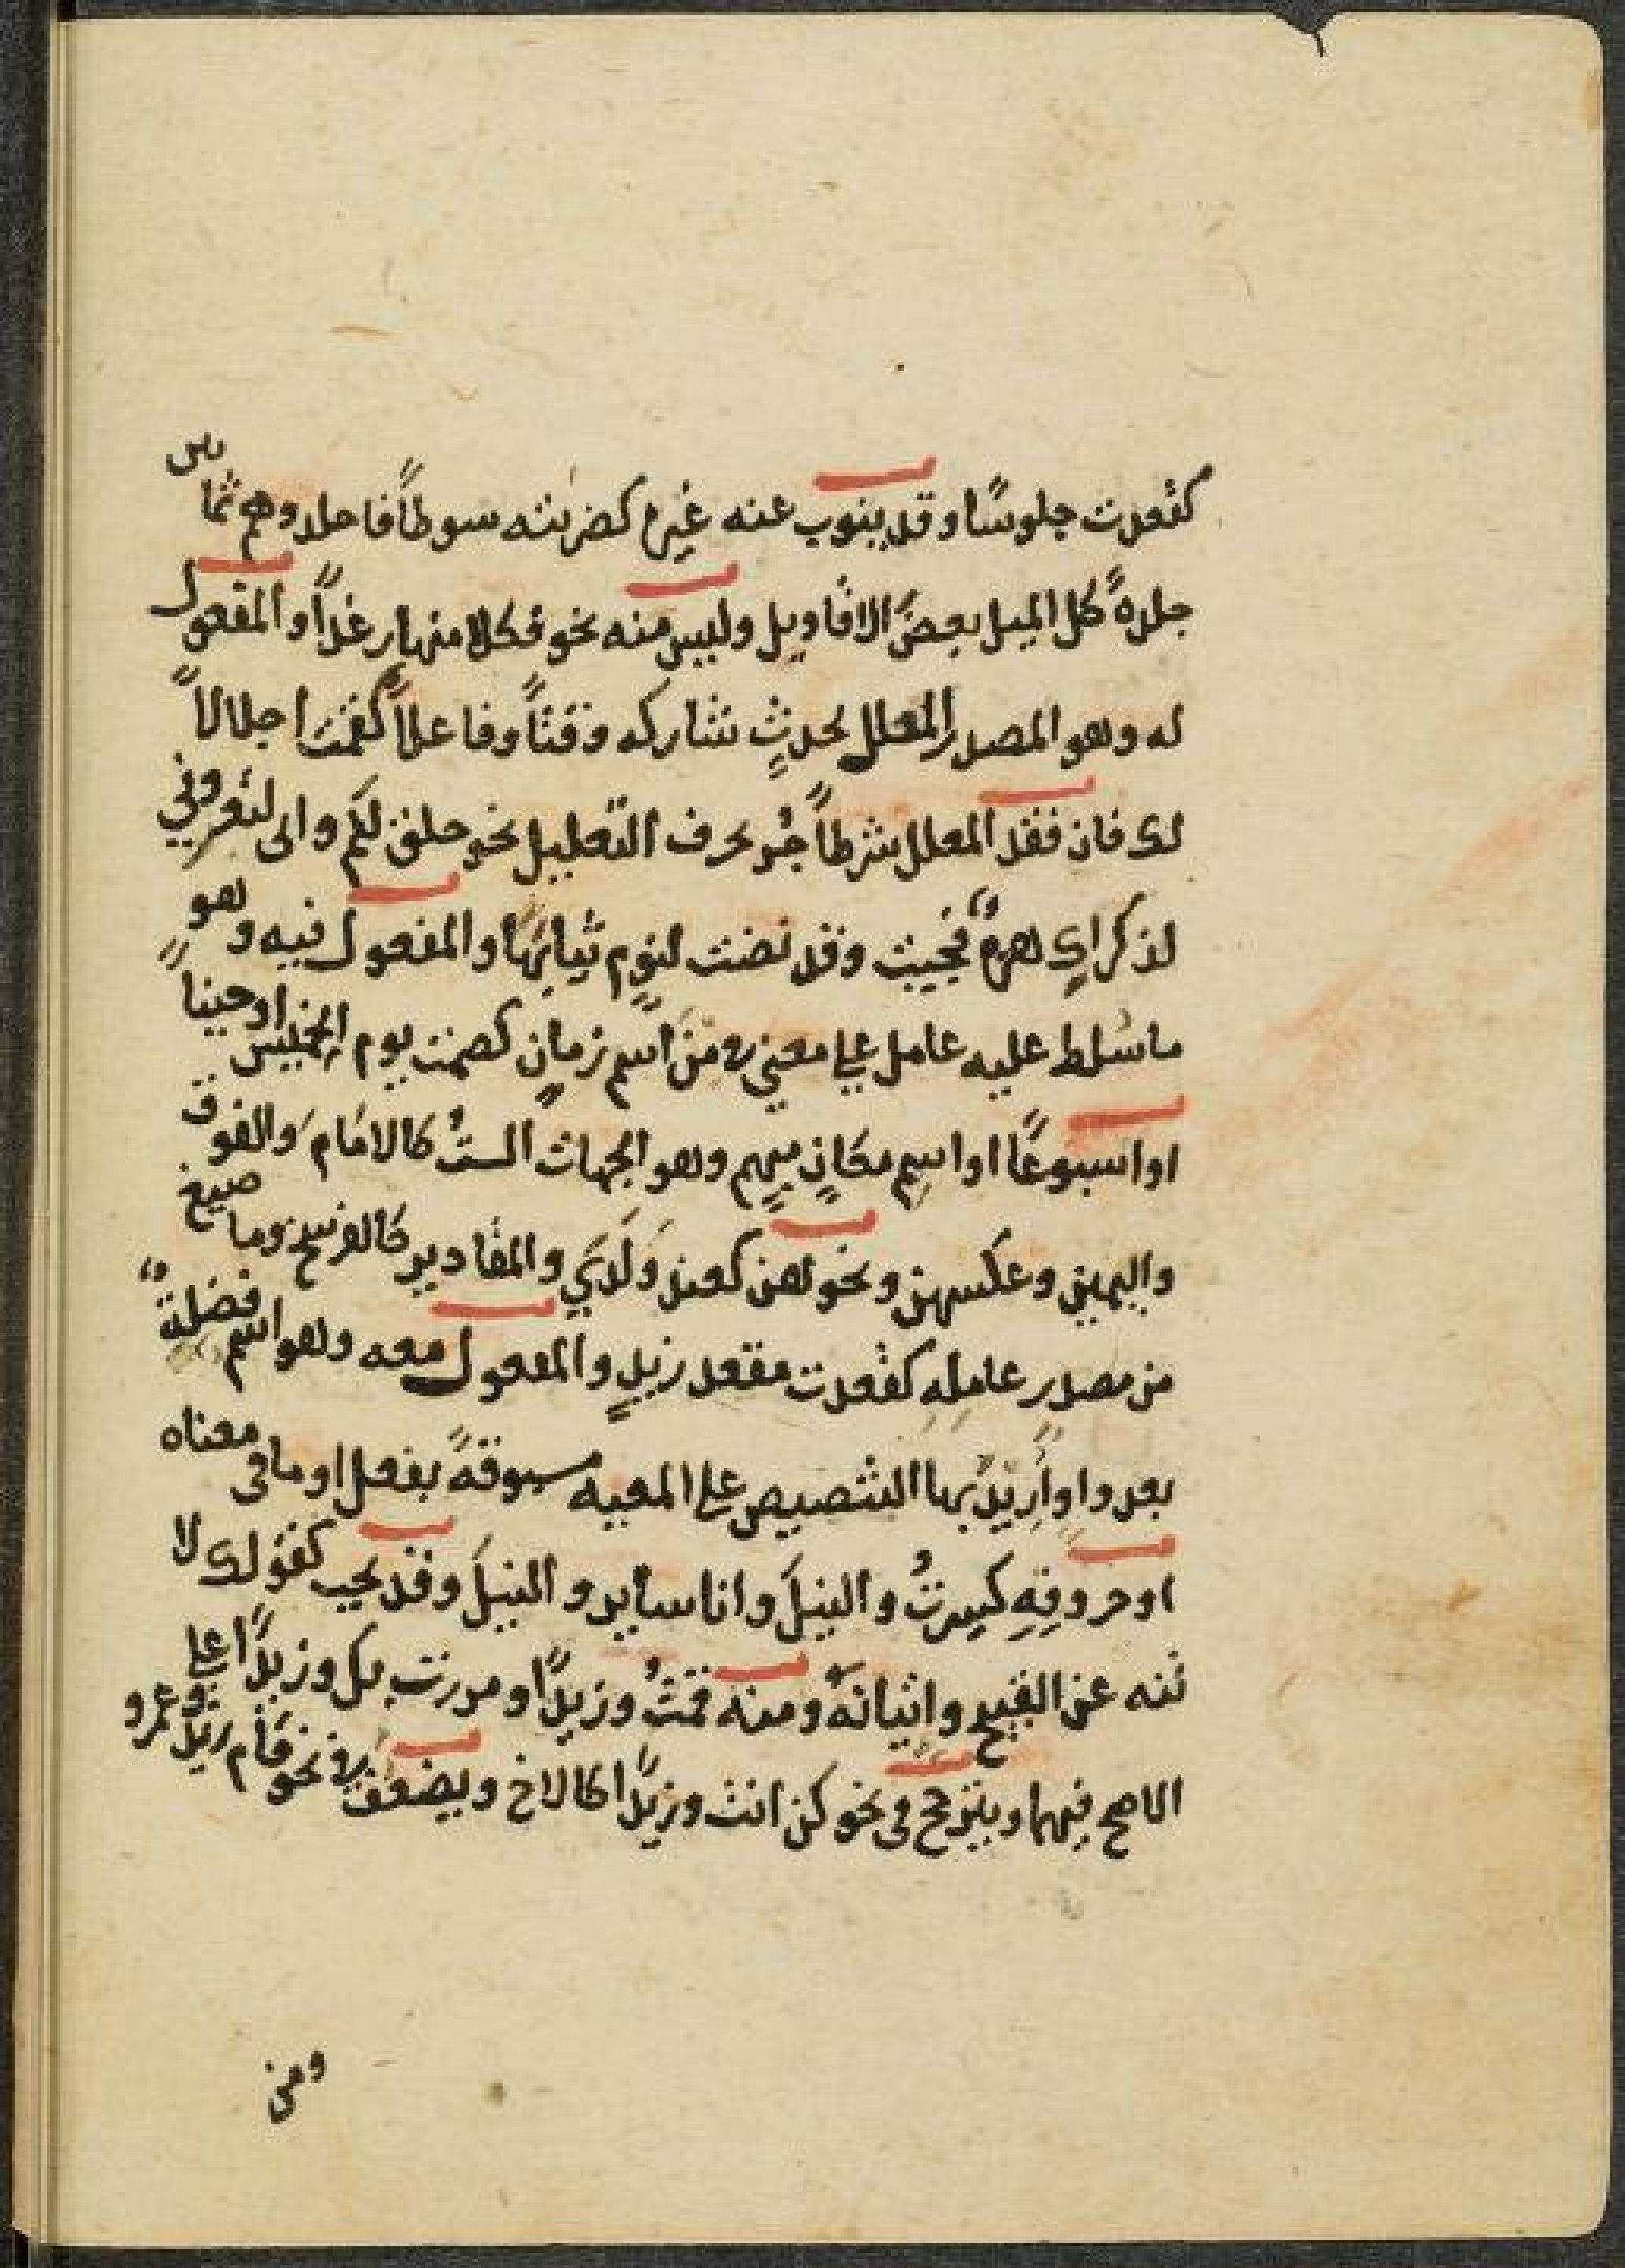 كقعدت جلوسًا وقد ينوب عنه غيره كضربته سوطاً فاجلدوهم ثمانين
جلدةً كل الميل بعضَ الاقاويل وليس منه نحو فكلا منها رغداً والمفعول
له وهو المصدر المعلل لحدثٍ شاركه وقتاً وفاعلاً كقمت اجلالاً
لك فان فقد المعلل شرطاً جُر بحرف التعليل نحو خلق لكم واني لتعروني
لذكراكِ هزةٌ فجيت وقد نضت لنومٍ ثيابَها والمفعول فيه وهو
ما سُلط عليه عامل على معنى في من اسم زمانٍ كصمت يوم الخميس او حيناً
او اسبوعًا او اسم مكانٍ مبهمٍ وهو الجهات الستُ كالامَام والفوق
واليمين وعكسهن ونحوهن كعندَ ولَدَي والمقادير كالفرسخ وما صيغ
من مصدر عاملِهِ كقعدت مقعد زيدٍ والمفعول معه وهو اسم فضلةٌ
بعد واوٍ أُرِيْدَ بها التنصيص على المعيه مسبوقةً بفعل او ما فى معناه
او حروفِهِ كسِرتُ والنيلَ وانا ساير والنيلَ وقد يجب كقولك لا
تنه عن القبيح واتيانَهُ ومنه قمتُ وزيدًا ومررت بك وزيدًا على
الاصح فيهما ويترجح في نحو كن انت وزيدًا كالاخ ويضعف في نحو قام زيد وعمرو
ومن